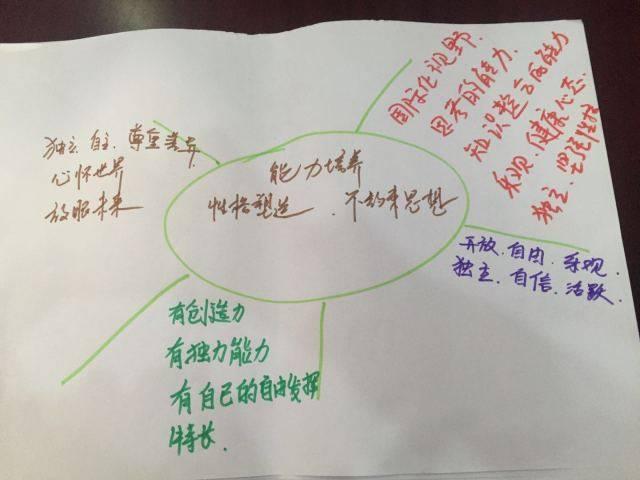 独立.自主.尊重差异
心怀世界
放眼未来
能力培养
性格塑造.不约束思想
国际化视野.
思考的能力.
知识整合的能力
乐观.健康心态.
独立.坚强性格
开放.自由.乐观.
独立.自信.活跃.
有创造力
有独力能力
有自己的自由发挥
特长.